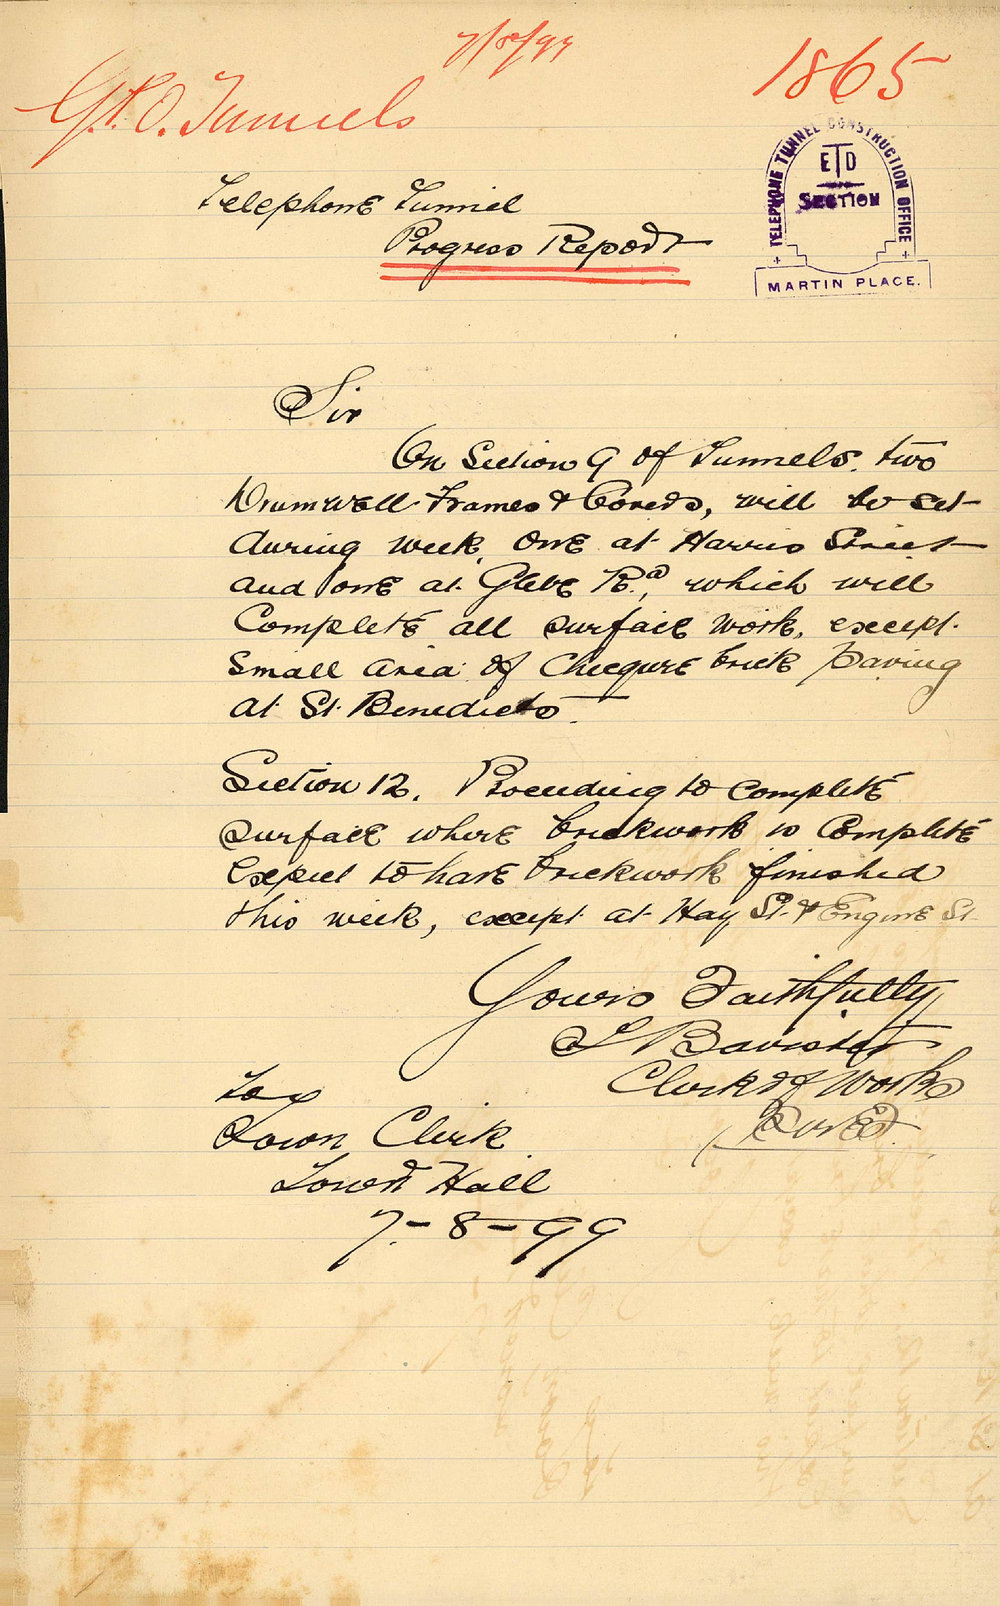 7/8/99
1865
G.P.O. Tunnels
TELEPHONE TUNNEL CONSTRUCTION OFFICE
ETD
SECTION
MARTIN PLACE.
Telephone Tunnel
Progress Report
Sir
On Section 9 of Tunnels, two
Drumwell Frames & Covers, will be set
during week, one at Harris Street
and one at Glebe Rd, which will
Complete all surface work, except
small area of Chequre brick paving
at St. Benedicts.
Section 12. Proceeding to complete
surface where brickwork is Complete
expect to have brickwork finished
this week, except at Hay St. & Engine St
Yours Faithfully
Bavister
Clerk of Works
To
Town Clerk
Town Hall
7-8-99